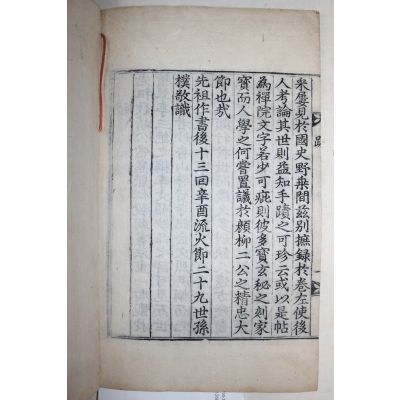 乘屢見於國史野乘間茲別摭錄於卷左使後
人考論其世則益知手蹟之可珍云或以是帖
為禪院文字若少可疵則彼多寶玄秘之刻家
寶而人學之何嘗置議於顔柳二公之精忠大
節也哉
先祖作書後十三回辛酉流火節二十九世孫
樸敬識
跋